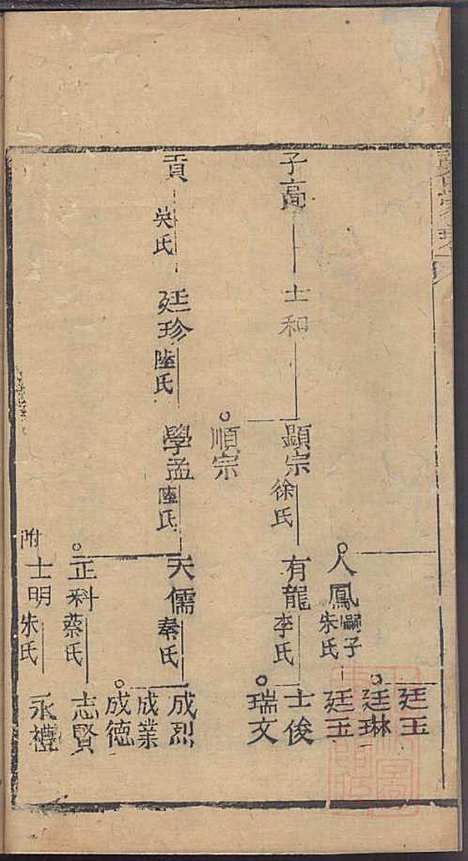 子高
士和
顯宗
徐氏
順宗
人鳳
嗣子
朱氏
有龍
李氏
廷玉
廷琳
廷玉
士俊
瑞文
貢
吳氏
廷珍
陸氏
學孟
陸氏
天儒
秦氏
正科
蔡氏
附
士明
朱氏
成烈
成業
成德
志賢
永禮